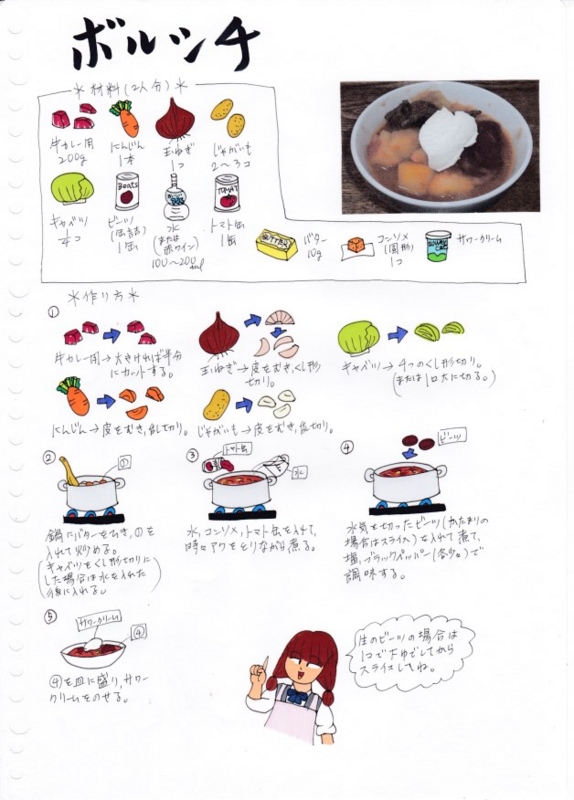 ボルシチ
*材料(2人分)*
牛カレー用
200g
にんじん
1本
玉ねぎ
1コ
じゃがいも
2〜3コ
キャベツ
1/4コ
Beats
ビーツ
(缶詰)
1缶
水
(または
赤ワイン)
100〜200ml
TOMATO
トマト缶
1缶
バター
10g
コンソメ
(固形)
1コ
サワークリーム
*作り方*
①
牛カレー用→大きければ半分
にカットする。
玉ねぎ→皮をむき、くし形
切り。
キャベツ→4つのくし形切り。
(または1口大に切る。)
にんじん→皮をむき、乱切り。
じゃがいも→皮をむき、乱切り。
②
①
鍋にバターをひき、①を
入れて炒める。
(キャベツをくし形切りに
した場合は水を入れた
後に入れる。)
③
トマト缶
水
水、コンソメ、トマト缶を入れて、
時々アクをとりながら煮る。
④
ビーツ
水気を切ったビーツ(かたまりの
場合はスライス)を入れて煮て、
塩、ブラックペッパー(各少々)で
調味する。
⑤
サワークリーム
④
④を皿に盛り、サワー
クリームをのせる。
生のビーツの場合は
1コで下ゆでしてから
スライスしてね。